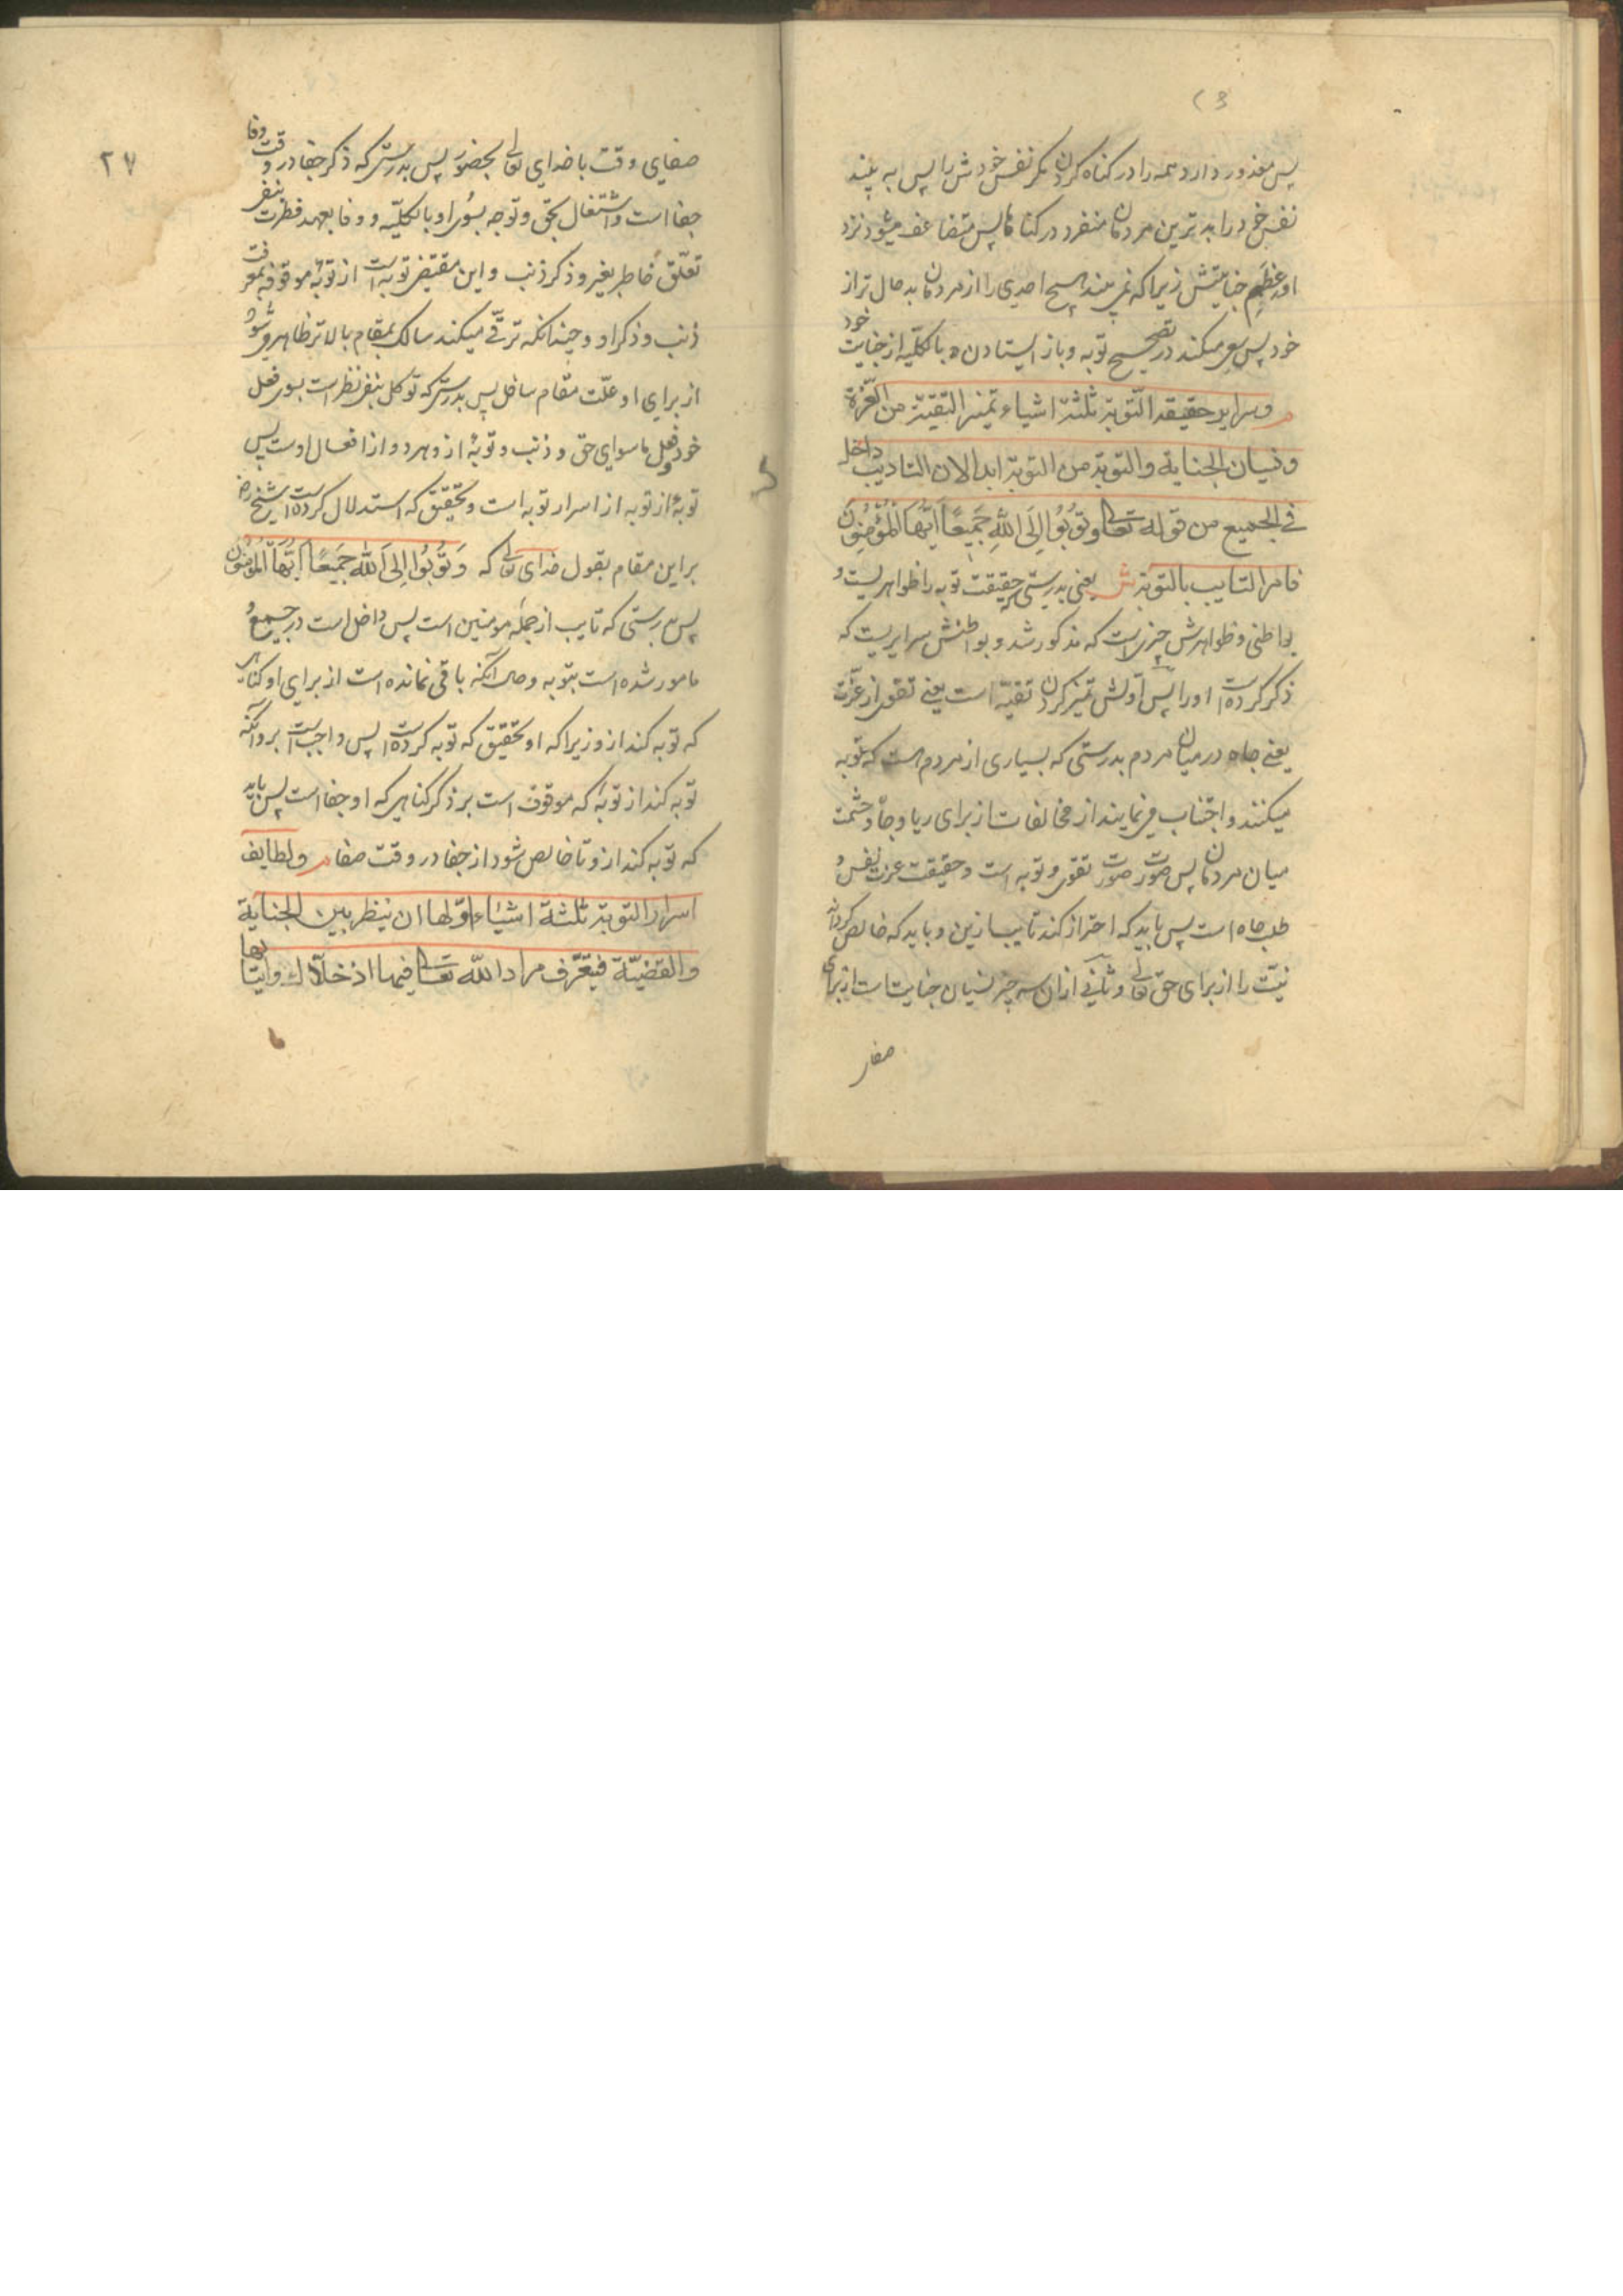 پس معذور دارد همه را در گناه کردن مگر نفس خودش را پس به بیند
نفس خود را بدترین مردمان منفرد در گناه پس متضاعف میشود نزد
او عظم جنایتش زیرا که نمی بیند هیچ احدی را از مردمان بد حال تر از
خود پس سعی میکند در تصحیح توبه و باز ایستادن بالکلیه از جنایت خود
م وسرایر حقیقة التوبة ثلثة اشیاء تمیز التقیة من العزة
ونسیان الجنایة والتوبة من التوبة ابدا لان التایب داخل
فی الجمیع من قوله تعالی وَتُوبُوا إِلَى اللَّهِ جَمِيعًا أَيُّهَا الْمُؤْمِنُونَ
فامر التایب بالتوبة ش یعنی بدرستی که حقیقت توبه را ظواهریست و
بواطنی و ظواهرش چیزیست که مذکور شد و بواطنش سرایریست که
ذکر کرده است او را پس اولش تمیز کردن تقیه است یعنی تقوی از عزت
یعنی جاه در میان مردم بدرستی که بسیاری از مردم است که توبه
میکنند و اجتناب می نمایند از مخالفات از برای ریا و جاه و حشمت
میان مردمان پس صورت صورت تقوی و توبه است و حقیقت عزت نفس و
طلب جاه است پس باید که احتراز کند تایب ازین و باید که خالص گرداند
نیت را از برای حق تعالی و ثانی از ان سه چیز نسیان جنایتست از برای
صفای
۲۷
صفای وقت با خدای تعالی بحضور پس بدرستی که ذکر جفا در وقت وفا
جفا است و اشتغال بحق و توجه بسوی او بالکلیه و وفا بعهد فطرت
تعلق خاطر بغیر و ذکر ذنب و این مقتضی توبه است از توبه موقوفه بمعرفت
ذنب و ذکر او و چندانکه ترقی میکند سالک بمقام بالاتر ظاهر می شود
از برای او علت مقام سافل پس بدرستی که توکل نظر است بسوی فعل
خود و فعل ما سوای حق و ذنب و توبه از و هر دو از افعال اوست پس
توبه از توبه از اسرار توبه است و بتحقیق که استدلال کرده است شیخ رض
بر این مقام بقول خدای تعالی که وَتُوبُوا إِلَى اللَّهِ جَمِيعًا أَيُّهَا الْمُؤْمِنُونَ
پس بدرستی که تایب از جمله مومنین است پس داخل است در جمیع و
مامور شده است بتوبه و حال آنکه باقی نمانده است از برای او گناهی
که توبه کند ازو زیرا که او بتحقیق که توبه کرده است پس واجبست برو آنکه
توبه کند از توبه که موقوف است بر ذکر گناهی که او جفا است پس باید
که توبه کند ازو تا خالص شود از جفا در وقت صفا م ولطایف
اسرار التوبة ثلثة اشیاء اولها ان ینظر بین الجنایة
والقضیة فیتعرف مراد الله تعالی فیها اذ خلاک واتیانها